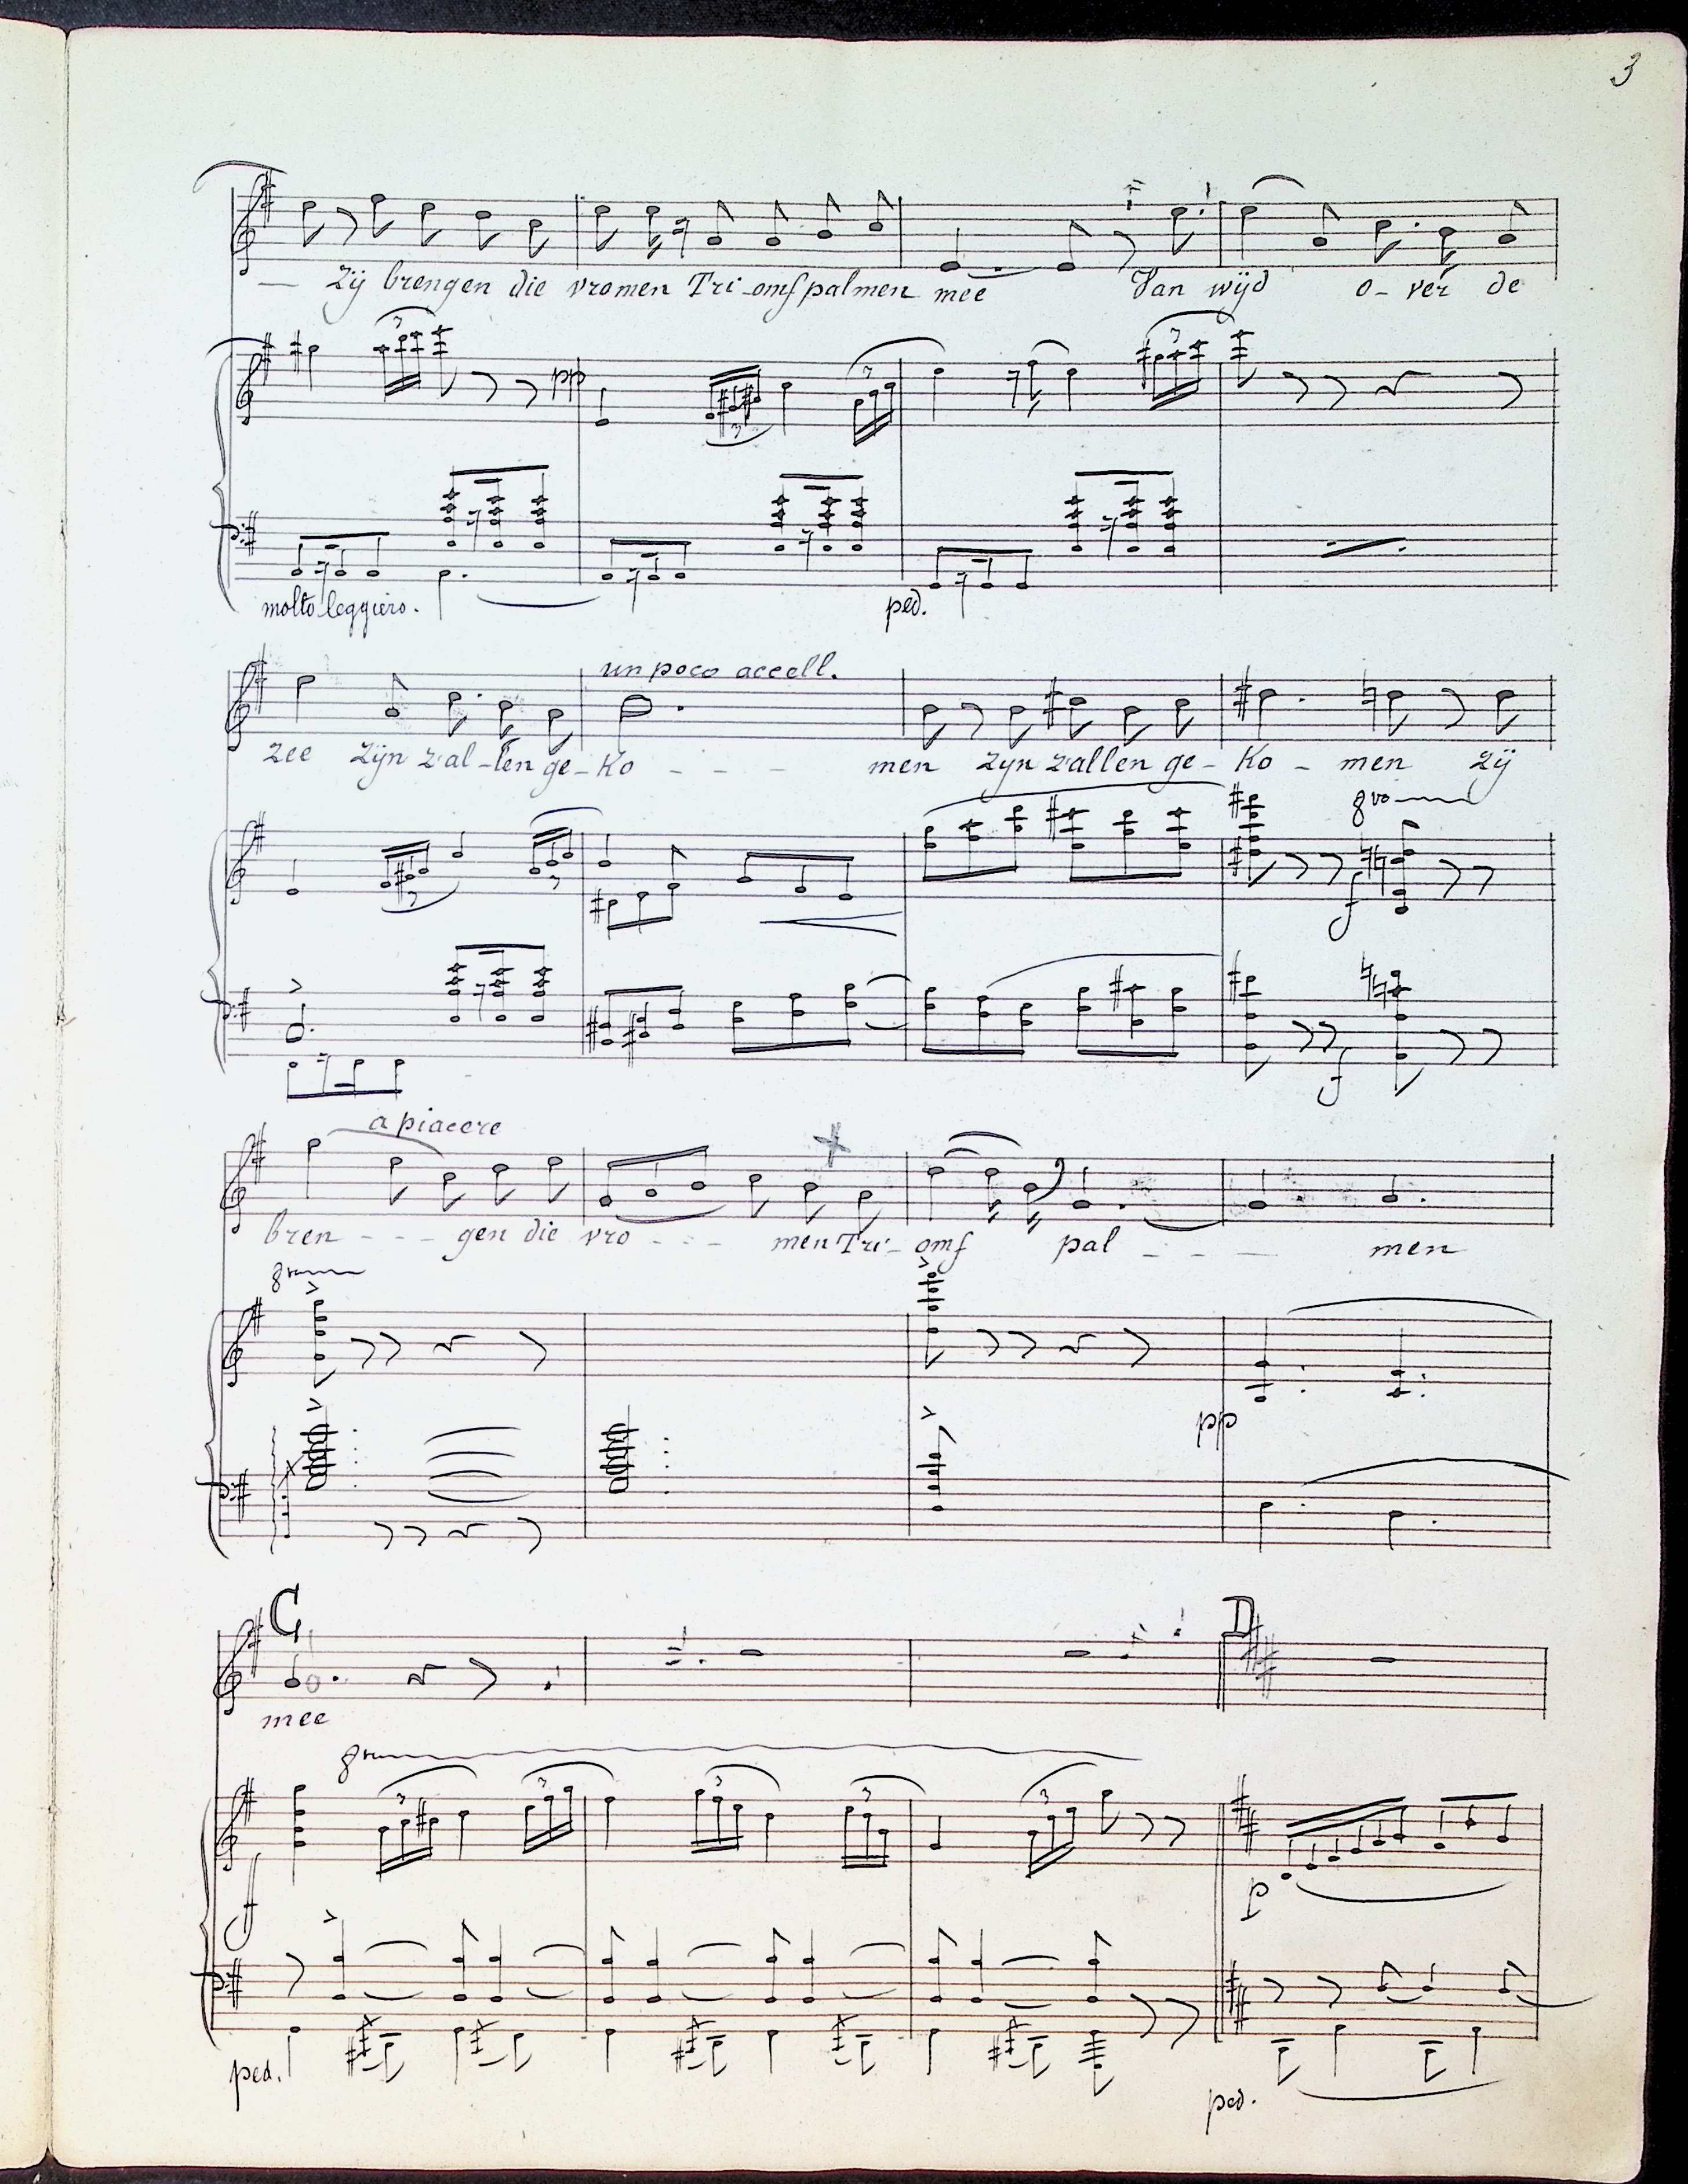 3
— Zij brengen die vromen Tri-omfpalmen mee Van wijd o-ver de
3
pp
3
3
3
molto leggiero.
ped.
un poco accell.
zee zijn zal-len ge-Ko - - - - men zijn zallen ge-Ko - men zij
8vo
3
3
f
f
a piacere
bren - - - gen die vro - - - men Tri-omf pal - - - men
8va
pp
C
D
mee
8va
3
3
3
3
3
f
p
ped.
ped.